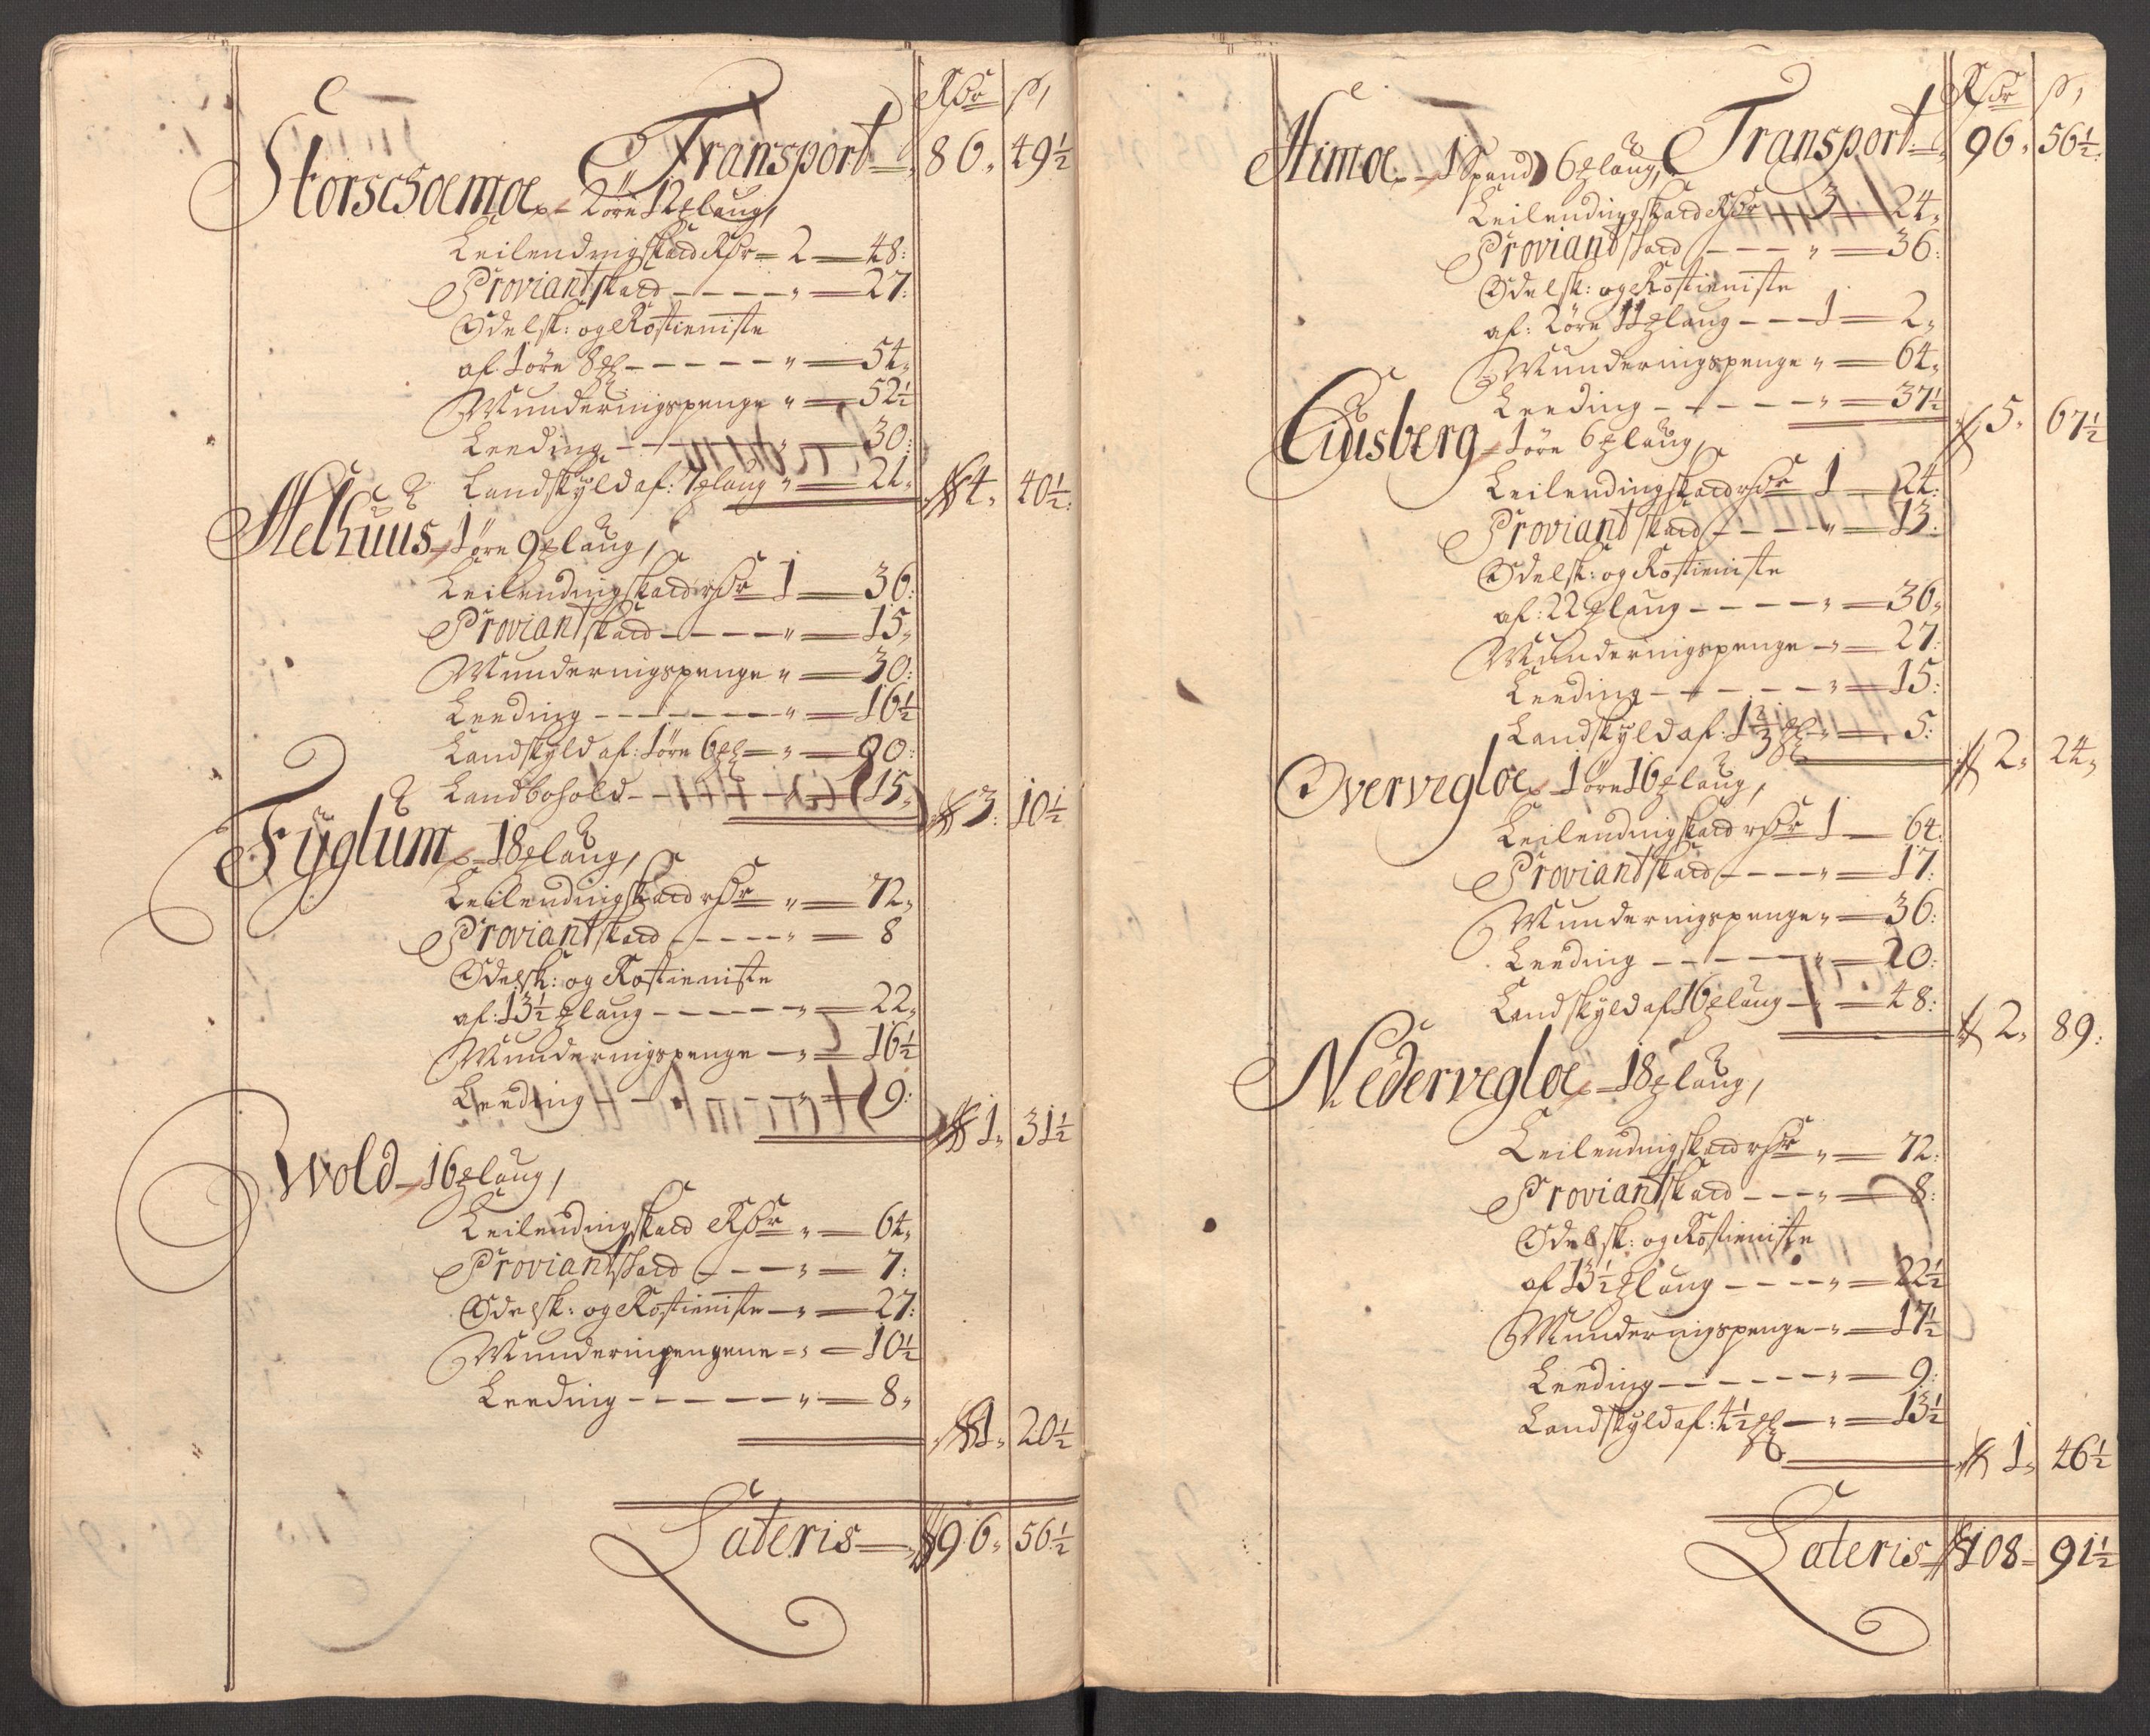 Rdr ß,
Transport 86. 49½
Storschæmoe 2 øre 12 ℔ laug,
Leilendingskad Rdr 2 48:
Proviantskad 27:
Odelsk: og Rostieniste
af 1 øre 8 ℔ 54,
Munderingspenge 52½
Leeding 30:
Landskyld af: 7 ℔ laug 21, 4, 40½:
Melhuus 1 øre 9 ℔ laug,
Leilendingskad rdr 1 36:
Proviantskad 15,
Munderingspenge 30:
Leeding 16½
Landskyld af: 1 øre 6 ℔ 90:
Landbohold 15, 3: 10½
Fyglum 18 ℔ laug,
Leilendingskad rdr 72,
Proviantskad 8
Odelsk: og Rostieniste
af: 13½ ℔ laug 22,
Munderingspenge 16½
Leeding 9: 1, 31½
Wold 16 ℔ laug,
Leilendingskad Rdr 64,
Proviantskad 7:
Odelsk: og Rostieniste 27:
Munderinpengene 10½
Leeding 8,
1. 20½
Lateris 96, 56½
Rdr ß,
Transport 96. 56½
Himoe 1 Spand 6 ℔ laug,
Leilendingskad Rdr 3 24,
Proviantskad 36:
Odelsk: og Rostieniste
af: 2 øre 11 ℔ laug 1 2,
Munderingspenge 64,
Leeding 37½ 5. 67½
Eidisberg 1 øre 6 ℔ laug,
Leilendingskad rdr 1 24:
Proviantskad 13:
Odelsk: og Rostieniste
af: 22 ℔ laug 36,
Munderingspenge 27:
Leeding 15:
Landskyld af: 1⅔ ℔ 5: 2, 24,
Overvegloe 1 øre 16 ℔ laug,
Leilendingskad rdr 1 64:
Proviantskad 17:
Munderingspenge 36:
Leeding 20:
Landskyld af 16 ℔ laug 48: 2, 89:
Nedervegloe 18 ℔ laug,
Leilendingskad rdr 72:
Proviantskad 8:
Odelsk: og Rostieniste
af 13½ ℔ laug 22½
Munderingspenge 17½
Leeding 9:
Landskyld af: 4½ ℔ 13½
1, 46½
Lateris 108 91½